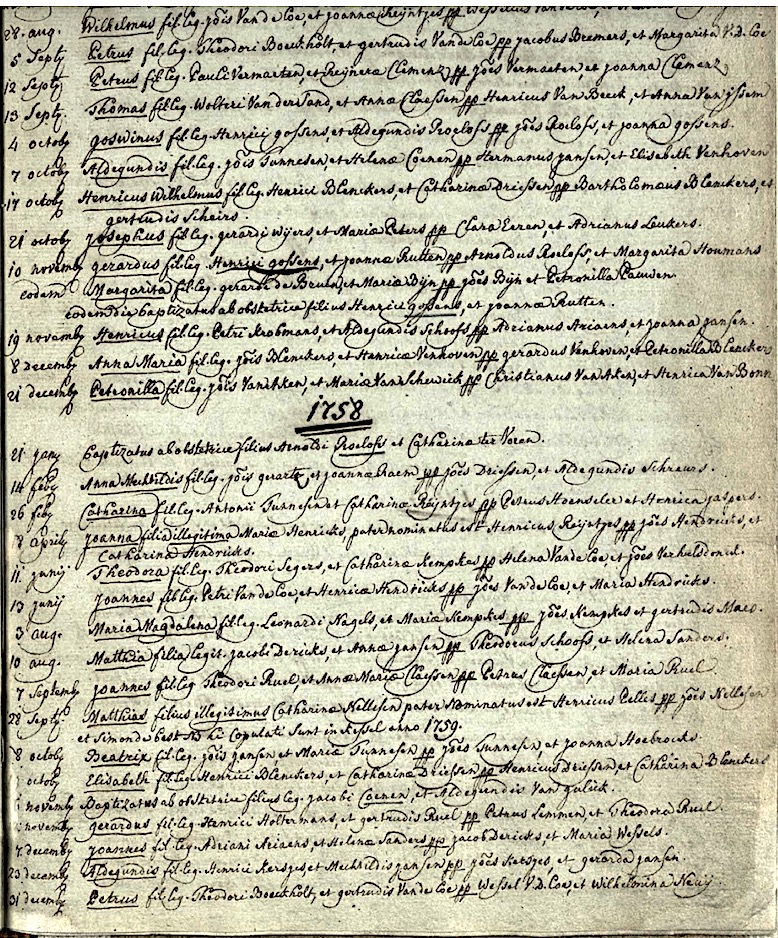 28. aug. Wilhelmus fil. leg. jois Van de Coe, et joannæ Reijntjes pp Wesselus
5 Septy Petrus fil. leg. Theodori Boeckholt et gertrudis Van de Coe pp jacobus Bremers, et Margarita V. D. Coe
12 Septy Petrus fil. leg. Pauli Vermaeten, et Reijneræ Clemenz pp jōes Vermaeten, et joanna Clemenz
13 Septy Thomas fil. leg. Wolteri Van der Sand, et Annæ Claessen pp Henricus Van Beeck, et Anna Van ijssem
4 octoby goswinus fil. leg. Henrici gossens et Aldegundis Roeloss pp jōes Roeloss, et joanna gossens.
7 octoby Aldegundis fil. leg. jōis Tunnesen, et Helenæ Coenen pp Hermanus jansen, et Elisabeth Venhoven
17 octoby Henricus Wilhelmus fil. leg. Henrici Blenckers, et Catharinæ Driessen pp Bartholomæus Blenckers, et
gertrudis Scheirs.
21 octoby josephus fil. leg. gerardi Wijers, et Mariæ Peters pp Clara Eeren, et Adrianus Leukers.
10 novemb gerardus fil. leg. Henrici gossens, et joannæ Rutten pp Arnoldus Roeloss, et Margarita Houmans
eodem Margarita fil. leg. gerardi de Bruin, et Mariæ Bijn pp jōes Bijn et Petronilla Lauwen.
eodem die baptizatus ab obstetrice filius Henrici gossens, et joannæ Rutten.
19 novemby Henricus fil. leg. Petri Krobmans, et Aldegundis Schoofs pp Adrianus Ariaens, et joanna jansen.
8 decemby Anna Maria fil. leg. jōis Blenckers et Henricæ Venhoven pp gerardus Venhoven, et Petronilla Blenckers
21 decemby Petronilla fil. leg. jōis Van Aken, et Mariæ Van Schewick pp Christianus Van Aken, et Henrica Van Bonn
1758
21 jany baptizatus ab obstetrice filius Arnoldi Roeloss et Catharinæ ter Voren.
14 feby Anna Mechtildis fil. leg. jōis gerartz, et joannæ Raem pp jōes Driessen, et Aldegundis Schreurs.
26 feby Catharina fil. leg. Antonii Tunnesen et Catharinæ Reijntjes pp Petrus Hoenseler et Henrica jaspers.
8 aprily joanna filia illegitima Mariæ Henricks, pater nominatus est Henricus Reijntjes pp jōes Hendricks, et
Catharina Hendricks.
11 junij Theodora fil. leg. Theodori Segers, et Catharinæ Kempkes pp Helena Van de Coe, et jōes Verhelsdonck.
13 junij joannes fil. leg. Petri Van de Coe, et Henricæ Hendricks pp jōes Van de Coe, et Maria Hendricks.
3 aug. Maria Magdalena fil. leg. Leonardi Nagels, et Mariæ Kempkes pp jōes Kempkes et gertrudis Maes.
10 aug. Matthia filia legit. jacobi Dericks, et Annæ jansen pp Theodorus Schoofs, et Helena Sanders.
7 Septemby joannes fil. leg Theodori Ruel, et Annæ Mariæ Claessen pp Petrus Claessen, et Maria Ruel.
28 Septy. Matthias filius illegitimus Catharinæ Nellesen pater nominatus est Henricus Pelles pp jōes Nellesen
et Simonde best NB hi Copulati sunt in Kessel anno 1759.
8 octoby Beatrix fil. leg. jōis jansen, et Mariæ Tunnesen pp jōes Tunnesen, et joanna Hoebrocks.
octoby Elisabeth fil. leg. Henrici Blenckers, et Catharinæ Driessen pp Henricus Driessen, et Catharina Blenckers
novemby Baptizatus ab obstetrice filius leg. jacobi Coenen, et Aldegundis Van gulick.
novemby gerardus fil. leg. Henrici Holtermans, et gertrudis Ruel pp Petrus Lemmen, et Theodora Ruel.
7 decemby joannes fil. leg. Adriani Ariaens, et Helenæ Sanders pp jacob Dericks, et Maria Wessels.
23 decemby Aldegundis fil. leg. Henrici Kersjes, et Mechtildis jansen pp jōes Kersjes, et gerarda jansen.
31 decemby Petrus fil. leg. Theodori Boeckholt, et gertrudis Van de Coe pp Wessel V. D. Coe, et Wilhelmina Neuij.